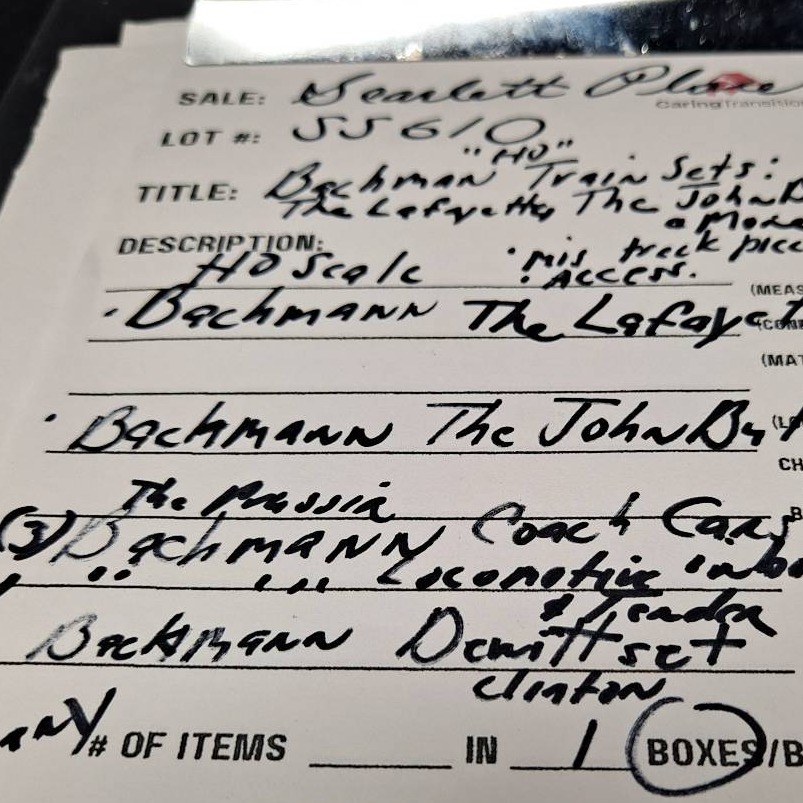 SALE: Scarlett Place
CaringTransitio
LOT #: 55610
"HO"
TITLE: Bachman Train Sets:
The Lafayette, The John B
a More
DESCRIPTION: • mis track piec
HO Scale • Access.
(MEAS
• Bachmann The Lafayet
(COND
(MAT
• Bachmann The John Bul
(LO
CH
The Prussia
B
(3) Bachmann Coach Cars
" " Locomotive inbo
& Tender
Bachmann Dewitt set
Clinton
any # OF ITEMS IN 1 BOXES/B